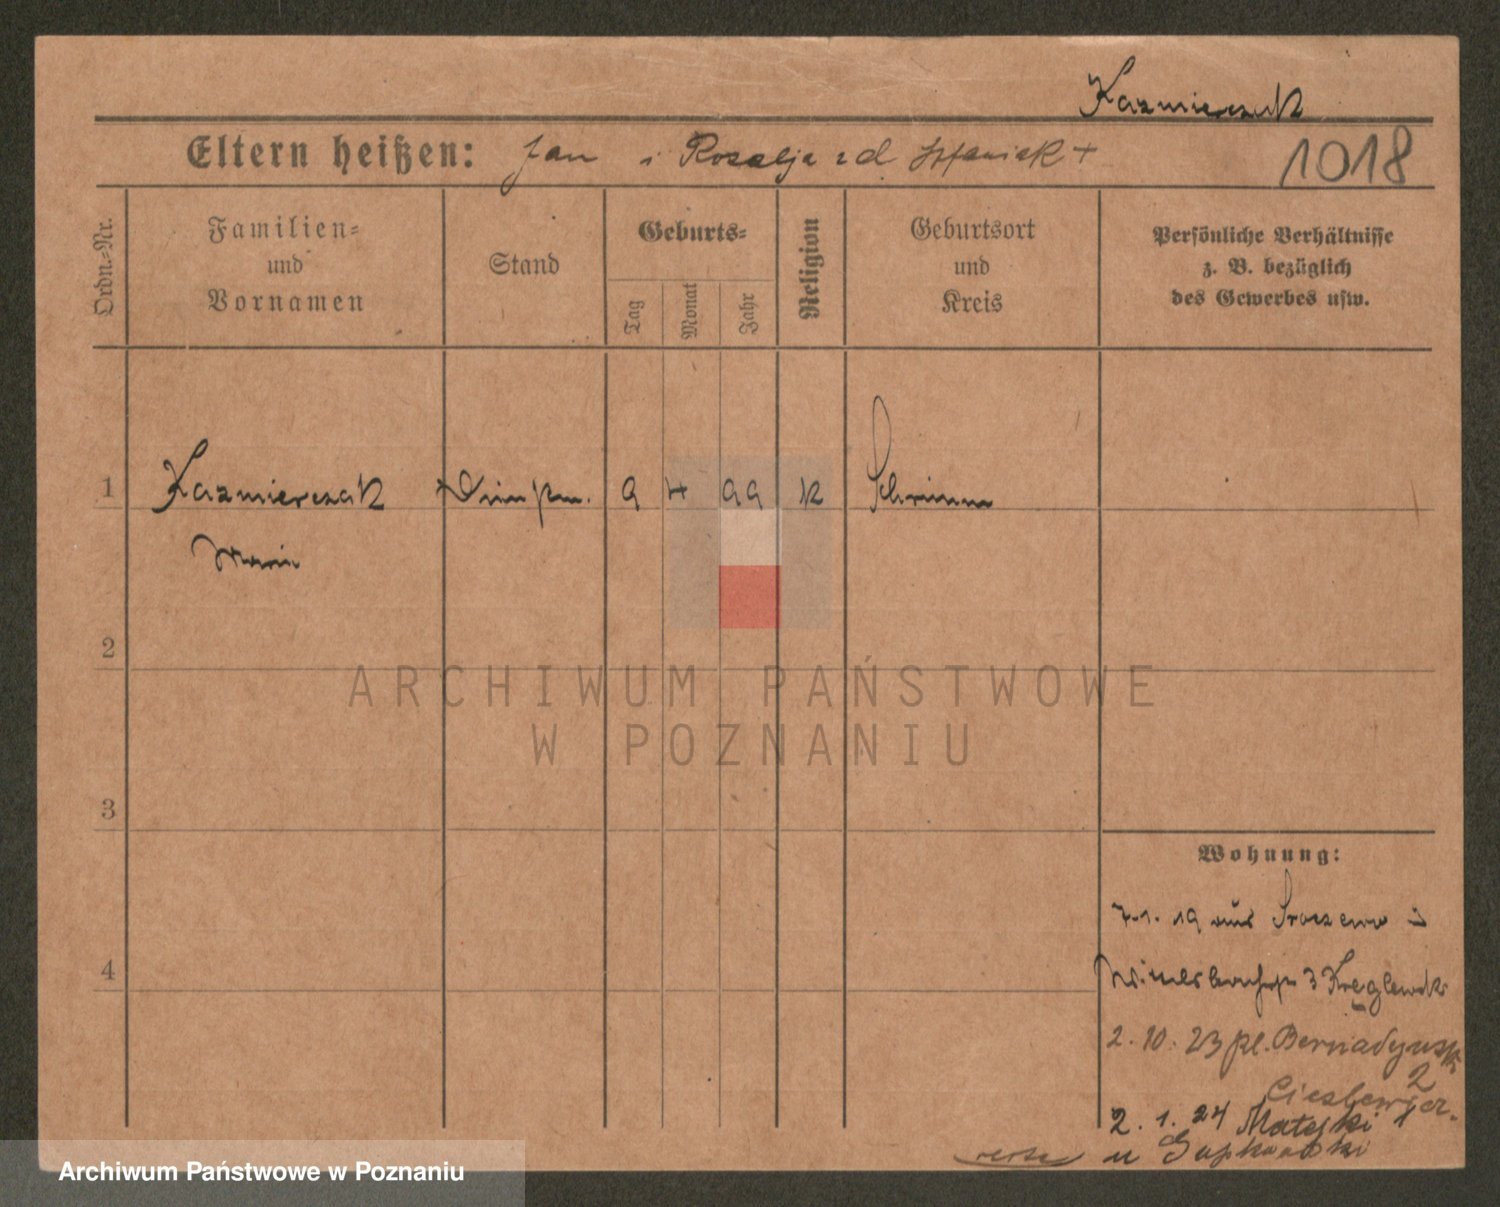 Kazmierczak
Eltern heißen: Jan i Rozalja zd +
1018
Ordn.-Nr.
Familien-
und
Vornamen
Stand
Geburts-
Tag
Monat
Jahr
Religion
Geburtsort
und
Kreis
Persönliche Verhältnisse
z. B. bezüglich
des Gewerbes usw.
1
Kazmierczak
9 4 99 K
Schrimm
Marie
2
ARCHIWUM PAŃSTWOWE
W POZNANIU
3
Wohnung:
7.1.19 aus
4
3 Kręglewski
2.10.23 pl. Bernadyński
2
2.1.24 Matejki
verte u
Archiwum Państwowe w Poznaniu